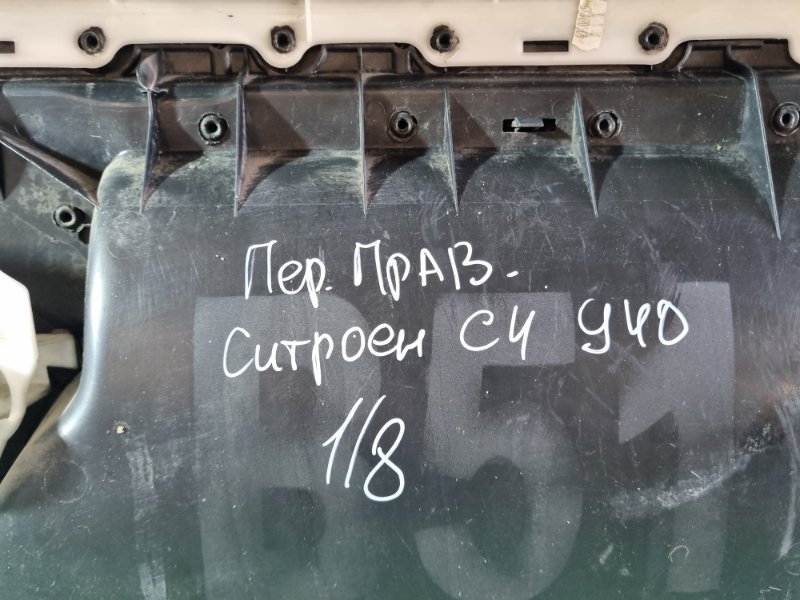 Пер. Прав.
Ситроен С4 940
1/8
B51